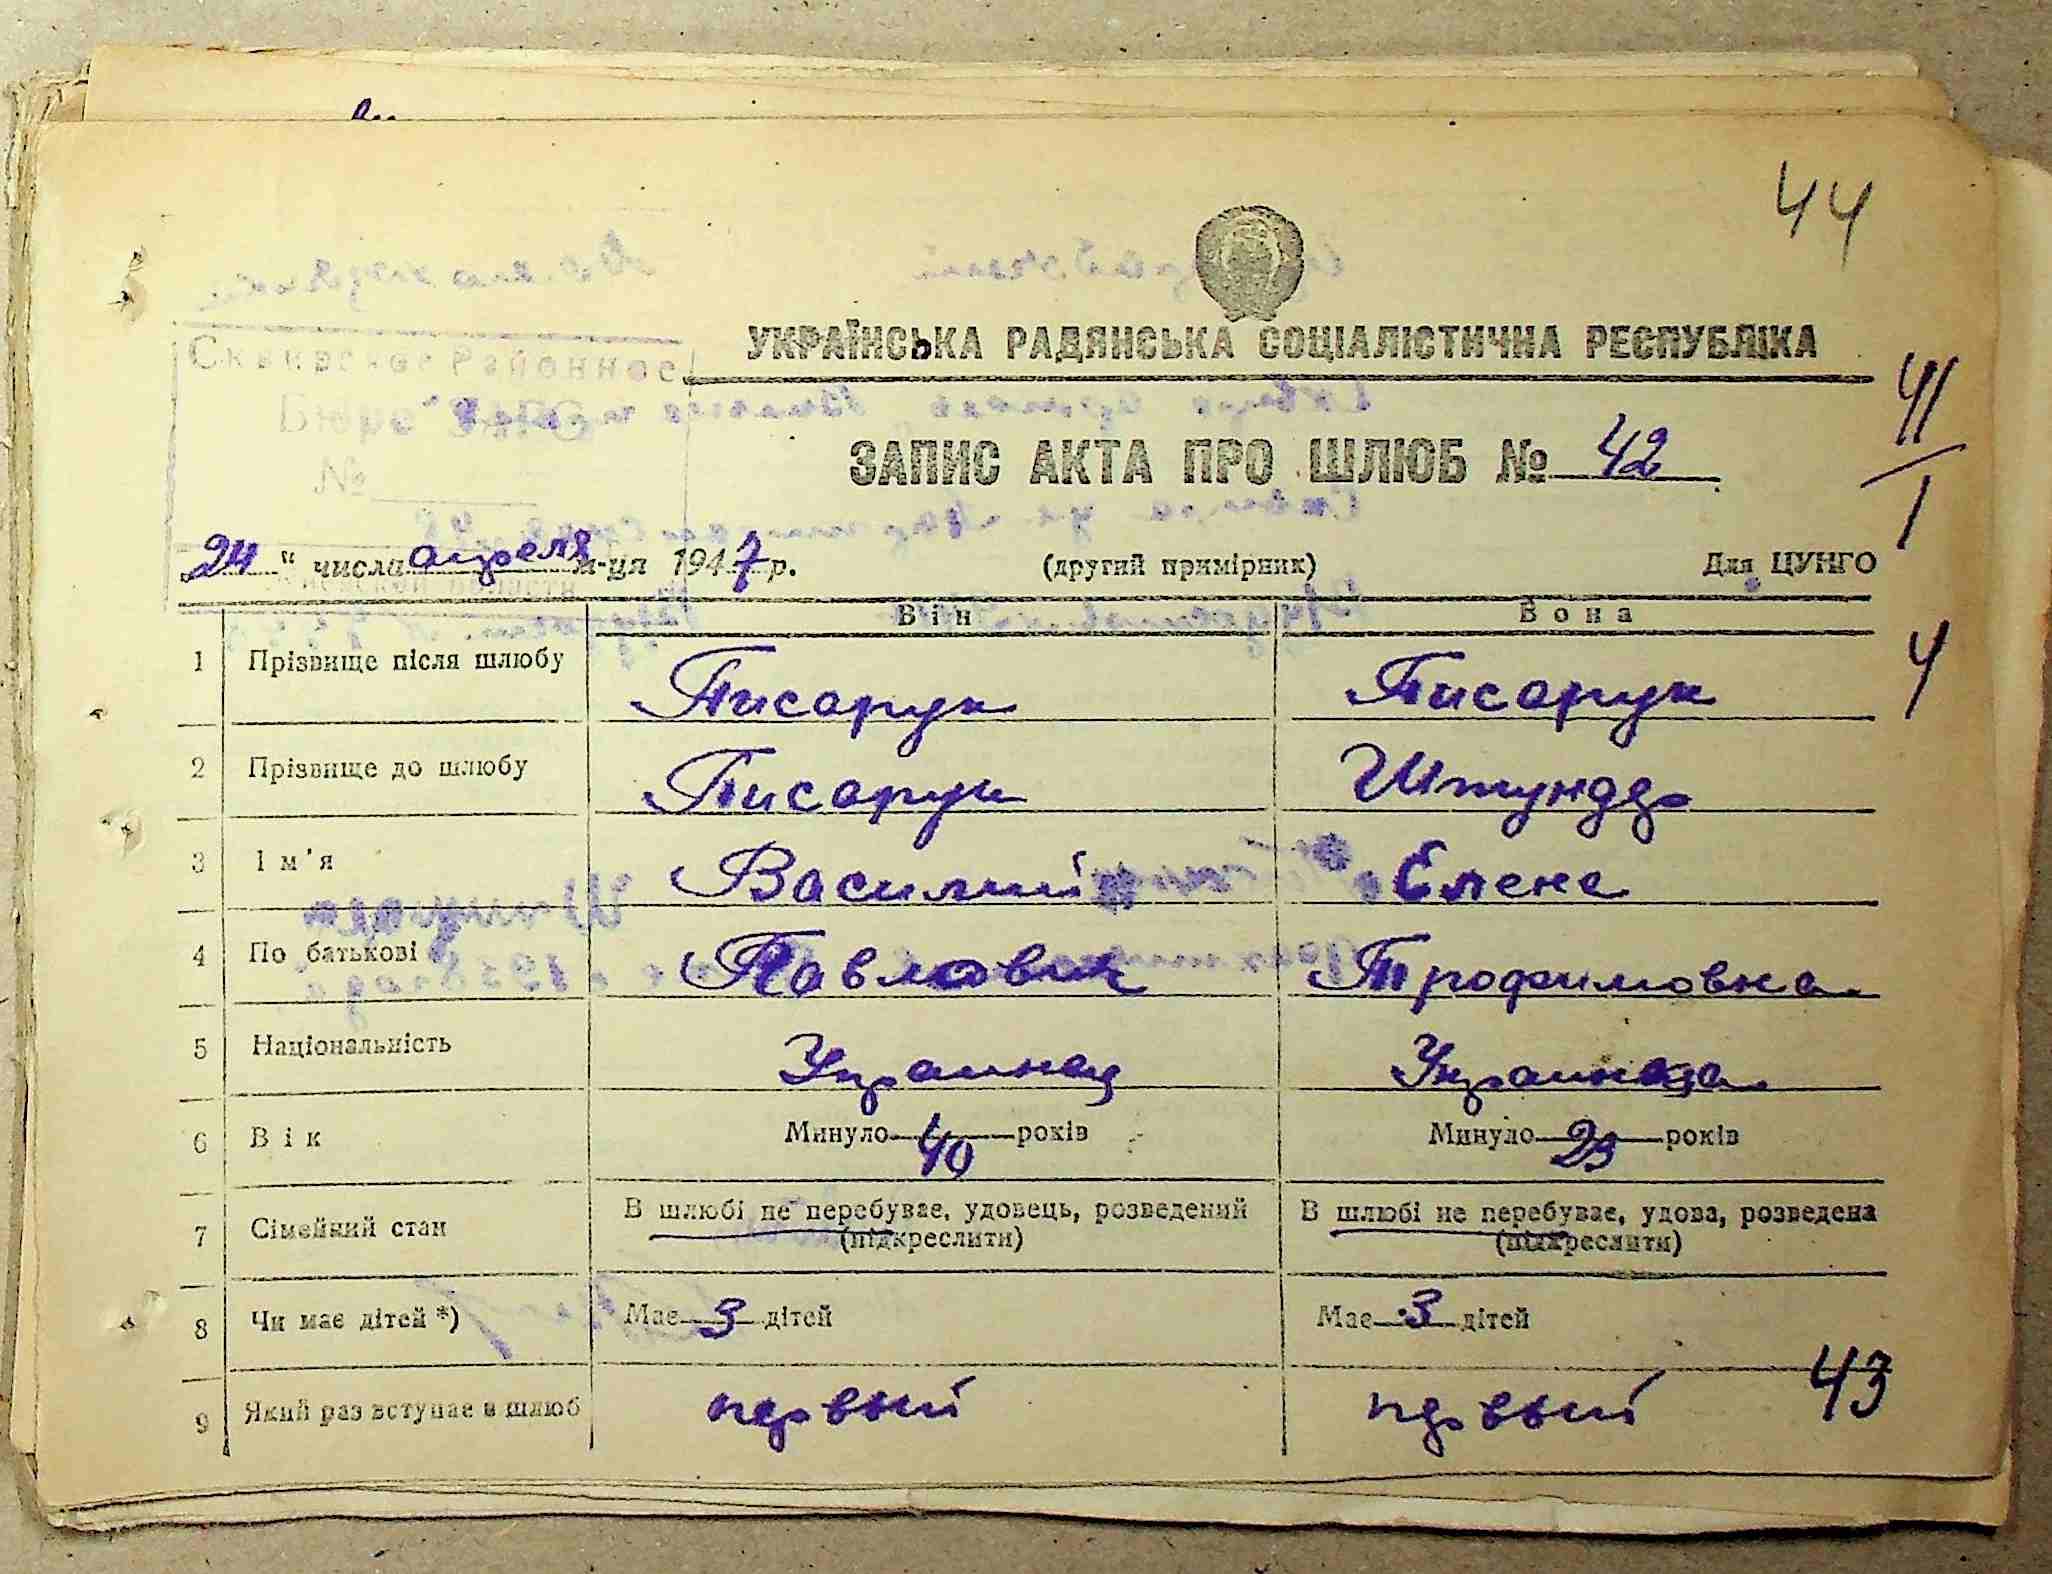 44
УКРАЇНСЬКА РАДЯНСЬКА СОЦІАЛІСТИЧНА РЕСПУБЛІКА
Сквирское Районное
Бюро ЗАГС
№
41/1
ЗАПИС АКТА ПРО ШЛЮБ № 42
24 " числа апреля м-ця 1947 р. (другий примірник) Для ЦУНГО
Він Вона
4
1 Прізвище після шлюбу Писарук Писарук
2 Прізвище до шлюбу Писарук Штундер
3 Ім'я Василий Елена
4 По батькові Павлович Трофимовна
5 Національність Украинец Украинеца
6 Вік Минуло 40 років Минуло 23 років
7 Сімейний стан В шлюбі не перебуває, удовець, розведений (підкреслити) В шлюбі не перебуває, удова, розведена (підкреслити)
8 Чи має дітей *) Має 3 дітей Має 3 дітей
9 Який раз вступає в шлюб первый первый
43